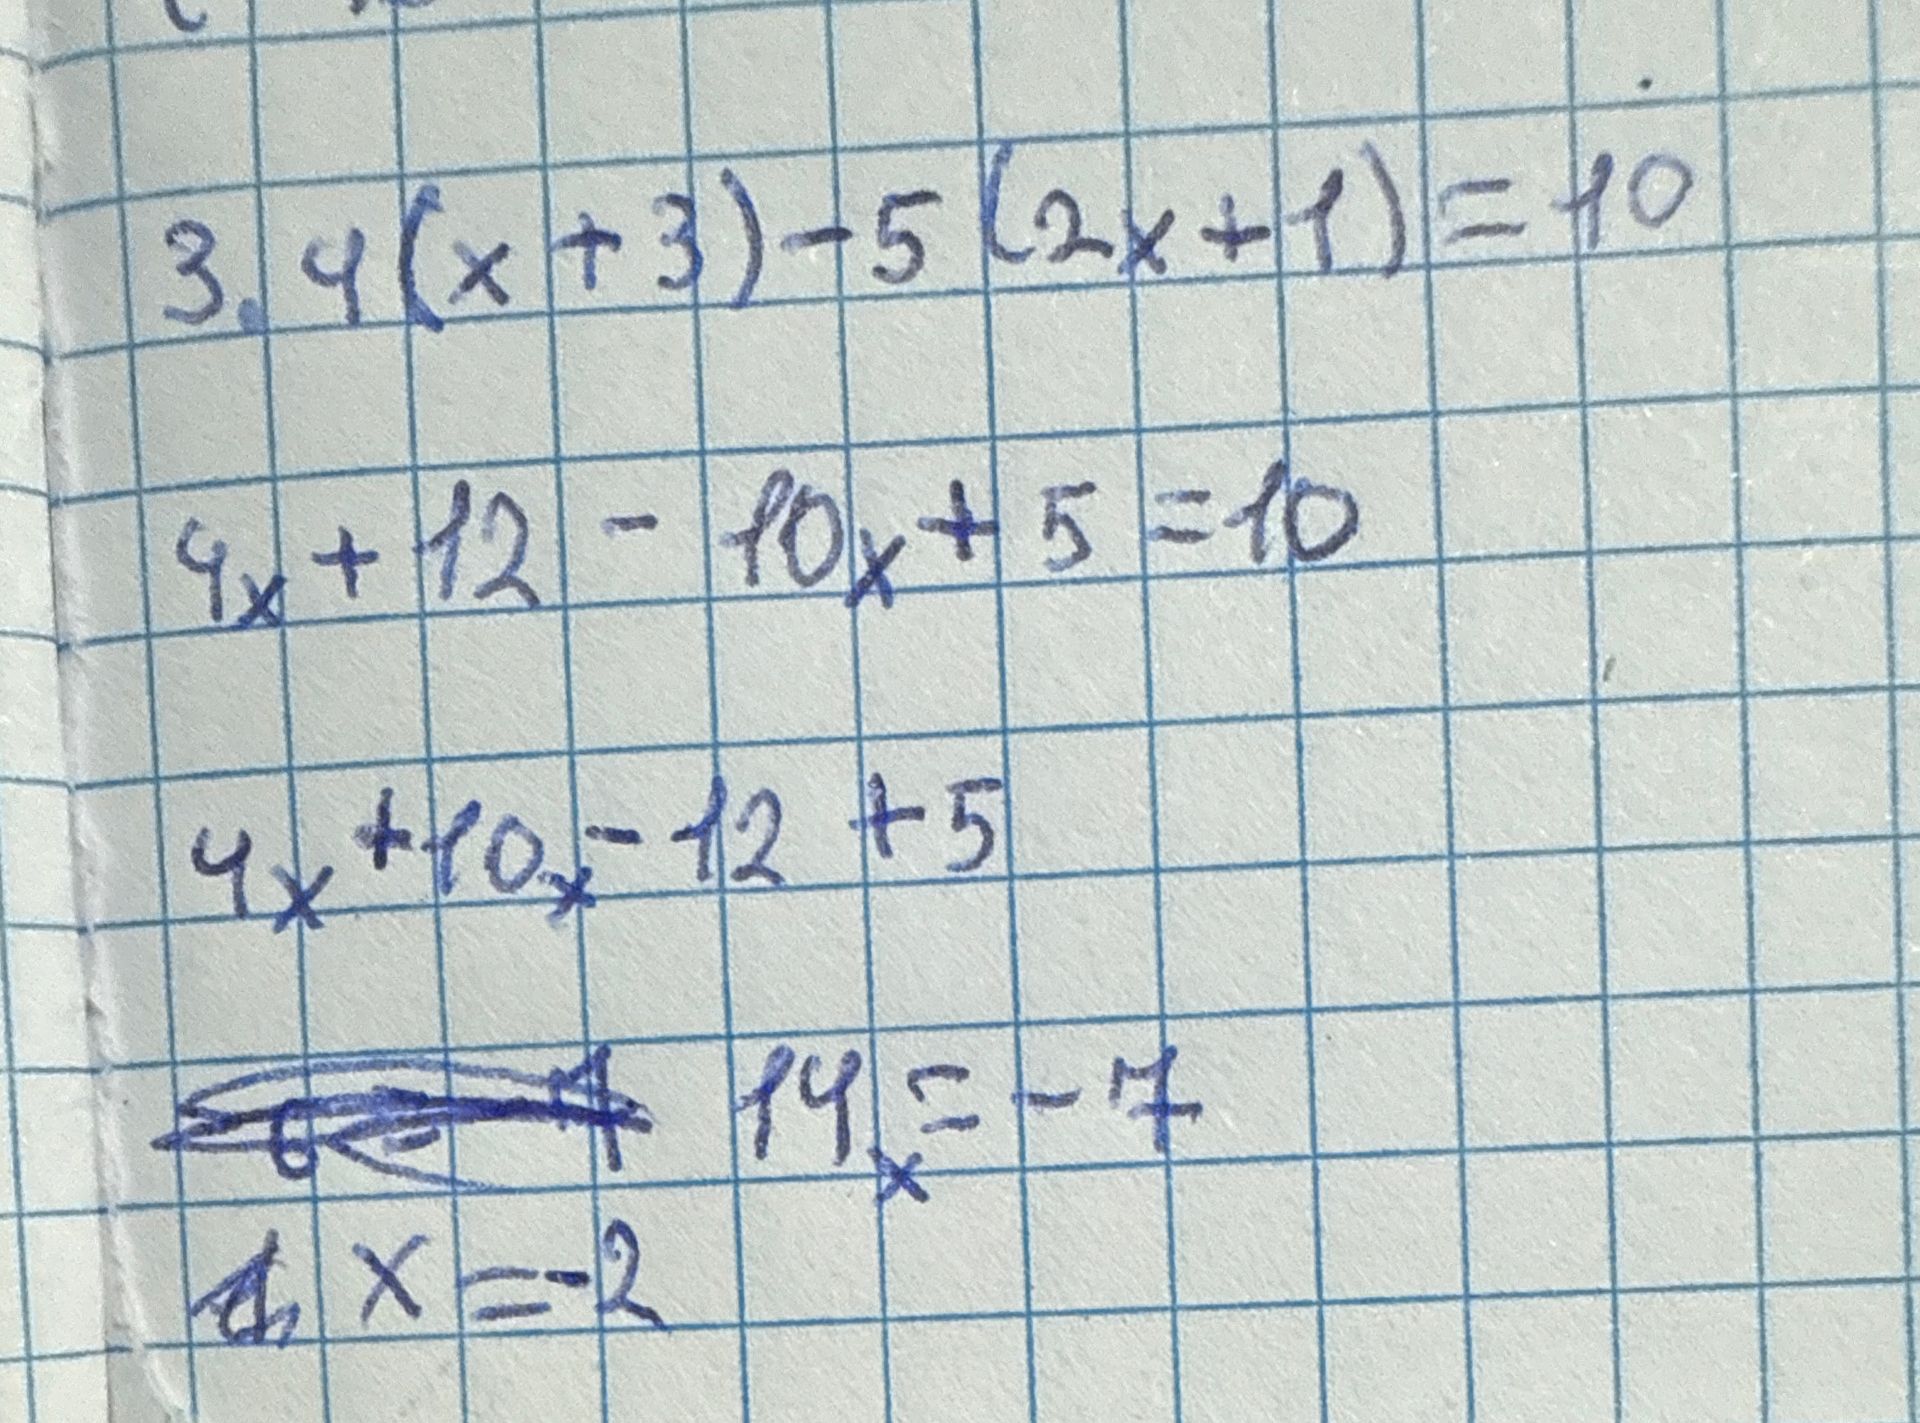 3. 4(x+3)-5(2x+1)=10
4x+12-10x+5=10
4x+10x-12+5
14x=-7
x=-2